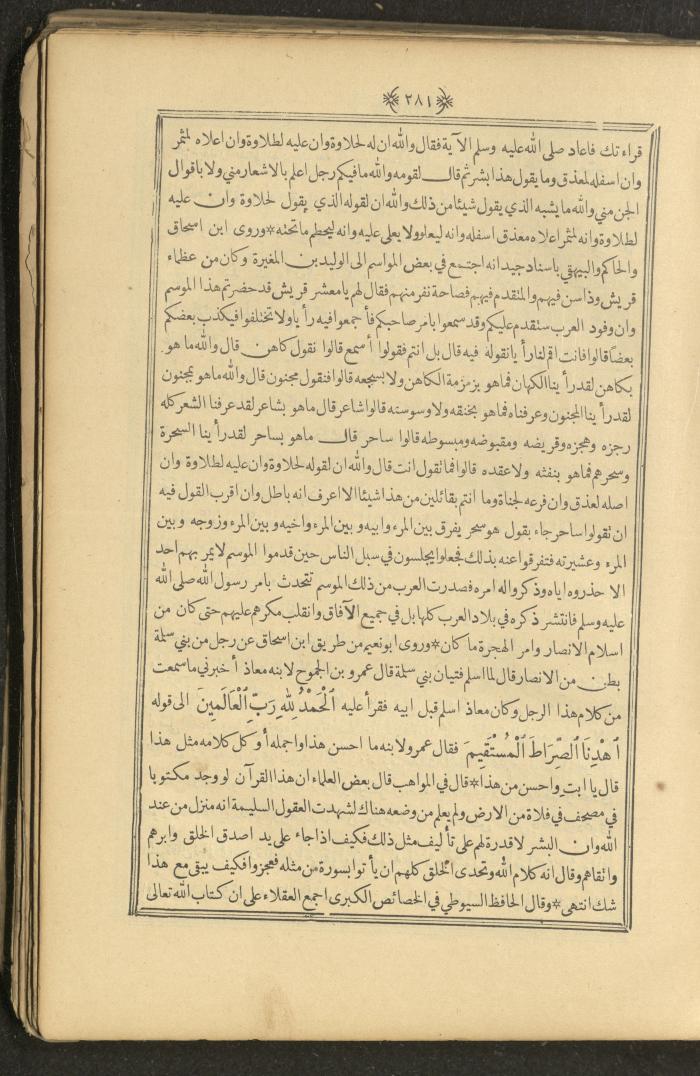 ﴿٢٨١﴾
قراءتك فاعاد صلى الله عليه وسلم الآية فقال والله ان له لحلاوة وان عليه لطلاوة وان اعلاه لمثمر
وان اسفله لمعذق وما يقول هذا بشر ثم قال لقومه والله ما فيكم رجل اعلم بالاشعار مني ولا باقوال
الجن مني والله ما يشبه الذي يقول شيئا من ذلك والله ان لقوله الذي يقول لحلاوة وان عليه
لطلاوة وانه لمثمر اعلاه معذق اسفله وانه ليعلو ولا يعلى عليه وانه ليحطم ما تحته * وروى ابن اسحاق
والحاكم والبيهقي باسناد جيد انه اجتمع في بعض المواسم الى الوليد بن المغيرة وكان من عظماء
قريش وذا سن فيهم والمتقدم فيهم فصاحة نفر منهم فقال لهم يا معشر قريش قد حضرتم هذا الموسم
وان وفود العرب ستقدم عليكم وقد سمعوا بامر صاحبكم فأجمعوا فيه رأيا ولا تختلفوا فيكذب بعضكم
بعضًا قالوا فانت اقم لنا رأيا نقوله فيه قال بل انتم فقولوا أسمع قالوا نقول كاهن قال والله ما هو
بكاهن لقد رأينا الكهان فما هو بزمزمة الكاهن ولا بسجعه قالوا فنقول مجنون قال والله ما هو بمجنون
لقد رأينا المجنون وعرفناه فما هو بخنقه ولا وسوسته قالوا شاعر قال ما هو بشاعر لقد عرفنا الشعر كله
رجزه وهجزه وقريضه ومقبوضه ومبسوطه قالوا ساحر قال ما هو بساحر لقد رأينا السحرة
وسحرهم فما هو بنفثه ولا عقده قالوا فما نقول انت قال والله ان لقوله لحلاوة وان عليه لطلاوة وان
اصله لعذق وان فرعه لجناة وما انتم بقائلين من هذا شيئا الا اعرف انه باطل وان اقرب القول فيه
ان تقولوا ساحر جاء بقول هو سحر يفرق بين المرء وابيه وبين المرء واخيه وبين المرء وزوجه وبين
المرء وعشيرته فتفرقوا عنه بذلك فجعلوا يجلسون في سبل الناس حين قدموا الموسم لا يمر بهم احد
الا حذروه اياه وذكروا له امره فصدرت العرب من ذلك الموسم تتحدث بامر رسول الله صلى الله
عليه وسلم فانتشر ذكره في بلاد العرب كلها بل في جميع الآفاق وانقلب مكرهم عليهم حتى كان من
اسلام الانصار وامر الهجرة ما كان * وروى ابو نعيم من طريق ابن اسحاق عن رجل من بني سلمة
بطن من الانصار قال لما اسلم فتيان بني سلمة قال عمرو بن الجموح لابنه معاذ أخبرني ما سمعت
من كلام هذا الرجل وكان معاذ اسلم قبل ابيه فقرأ عليه اَلْحَمْدُ لِلّٰهِ رَبِّ الْعَالَمِينَ الى قوله
اَهْدِنَا الصِّرَاطَ الْمُسْتَقِيمَ فقال عمرو لابنه ما احسن هذا واجمله أوكل كلامه مثل هذا
قال يا ابت واحسن من هذا * قال في المواهب قال بعض العلماء ان هذا القرآن لو وجد مكتوبا
في مصحف في فلاة من الارض ولم يعلم من وضعه هناك لشهدت العقول السليمة انه منزل من عند
الله وان البشر لا قدرة لهم على تأليف مثل ذلك فكيف اذا جاء على يد اصدق الخلق وابرهم
واتقاهم وقال انه كلام الله وتحدى الخلق كلهم ان يأتوا بسورة من مثله فعجزوا فكيف يبقى مع هذا
شك انتهى * وقال الحافظ السيوطي في الخصائص الكبرى اجمع العقلاء على ان كتاب الله تعالى